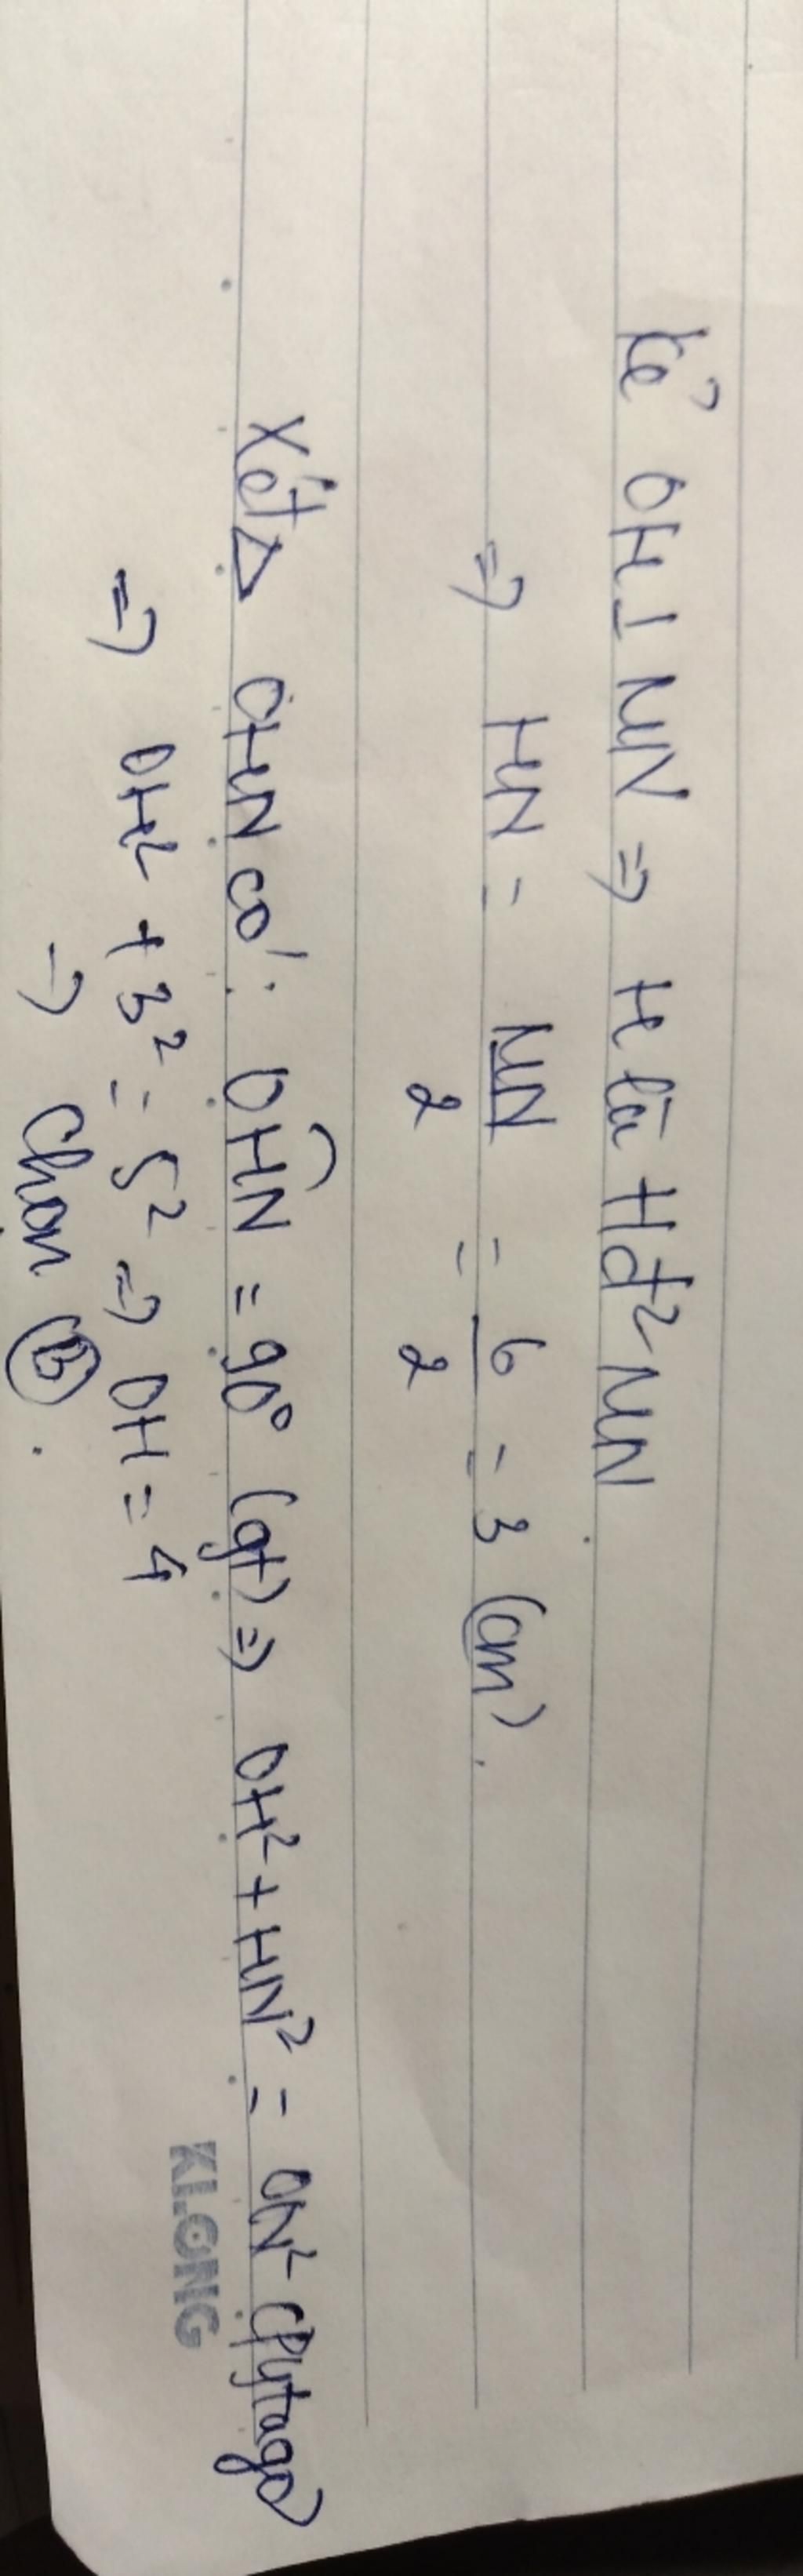 Kẻ OH ⊥ MN => H là Hđ² MN
=> HN = MN/2 = 6/2 = 3 (cm).
Xét Δ OHN có: OĤN = 90° (gt) => OH² + HN² = ON² (Pytago)
=> OH² + 3² = 5² => OH = 4
=> Chọn (B).
KLONG